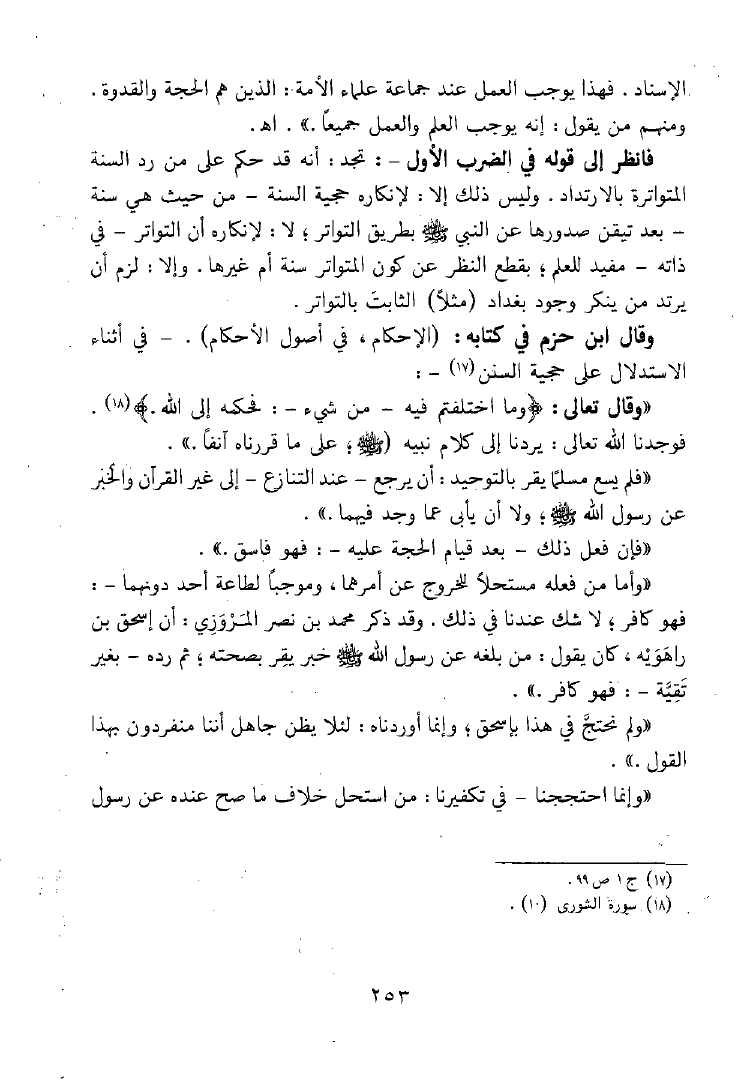 الإسناد . فهذا يوجب العمل عند جماعة علماء الأمة : الذين هم الحجة والقدوة .
ومنهم من يقول : إنه يوجب العلم والعمل جميعاً .» . اهـ .
فانظر إلى قوله في الضرب الأول – : تجد : أنه قد حكم على من رد السنة
المتواترة بالارتداد . وليس ذلك إلا : لإنكاره حجية السنة – من حيث هي سنة
– بعد تيقن صدورها عن النبي ﷺ بطريق التواتر ؛ لا : لإنكاره أن التواتر – في
ذاته – مفيد للعلم ؛ بقطع النظر عن كون المتواتر سنة أم غيرها . وإلا : لزم أن
يرتد من ينكر وجود بغداد (مثلاً) الثابتَ بالتواتر .
وقال ابن حزم في كتابه : (الإحكام ، في أصول الأحكام) . – في أثناء
الاستدلال على حجية السنن (١٧) – :
«وقال تعالى : ﴿وما اختلفتم فيه – من شيء – : فحكمه إلى الله .﴾ (١٨) .
فوجدنا الله تعالى : يردنا إلى كلام نبيه (ﷺ ؛ على ما قررناه آنفاً .» .
«فلم يسع مسلمًا يقر بالتوحيد : أن يرجع – عند التنازع – إلى غير القرآن والخَبر
عن رسول الله ﷺ ؛ ولا أن يأبى عما وجد فيهما .» .
«فإن فعل ذلك – بعد قيام الحجة عليه – : فهو فاسق .» .
«وأما من فعله مستحلاً للخروج عن أمرهما ، وموجباً لطاعة أحد دونهما – :
فهو كافر ؛ لا شك عندنا في ذلك . وقد ذكر محمد بن نصر المَرْوَزِي : أن إسحق بن
راهَوَيْه ، كان يقول : من بلغه عن رسول الله ﷺ خبر يقِر بصحته ؛ ثم رده – بغير
تَقِيَّة – : فهو كافر .» .
«ولم نحتجَّ في هذا بإسحق ؛ وإنما أوردناه : لئلا يظن جاهل أننا منفردون بهذا
القول .» .
«وإنما احتججنا – في تكفيرنا : من استحل خلاف ما صح عنده عن رسول
(١٧) ج ١ ص ٩٩ .
(١٨) سورة الشورى (١٠) .
٢٥٣